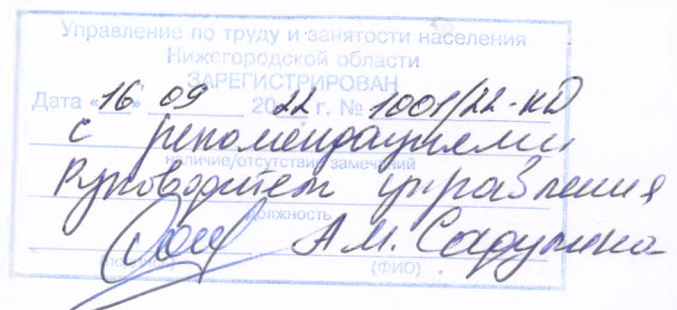 Управление по труду и занятости населения
Нижегородской области
ЗАРЕГИСТРИРОВАН
Дата «16» 09 2022 г. № 1001/22-КД
с рекомендациями
наличие/отсутствие замечаний
Руководитель управления
должность
А.М. Садулина
(подпись) (ФИО)